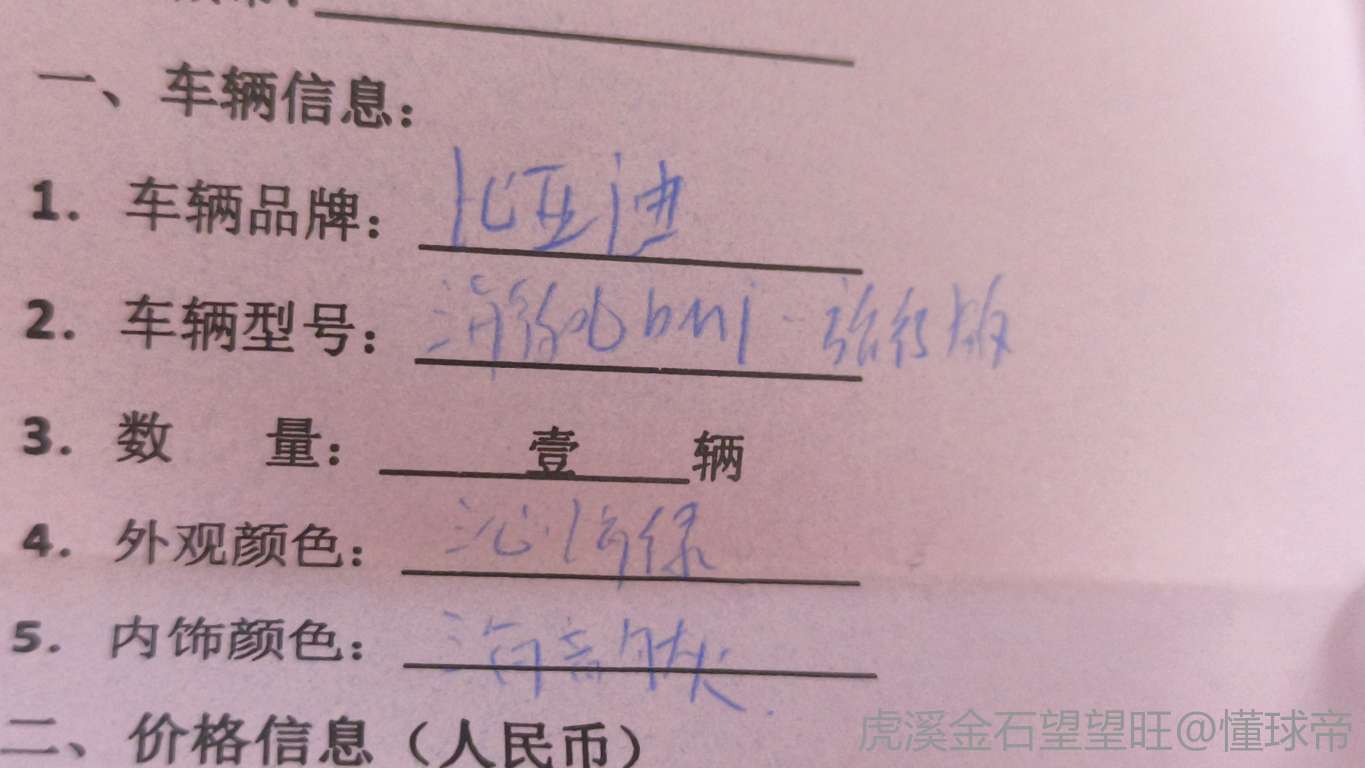 一、车辆信息：
1. 车辆品牌：比亚迪
2. 车辆型号：海豹06 DMI
3. 数 量：壹 辆
4. 外观颜色：沁 绿
5. 内饰颜色：海
二、价格信息（人民币）
虎溪金石望望旺@懂球帝